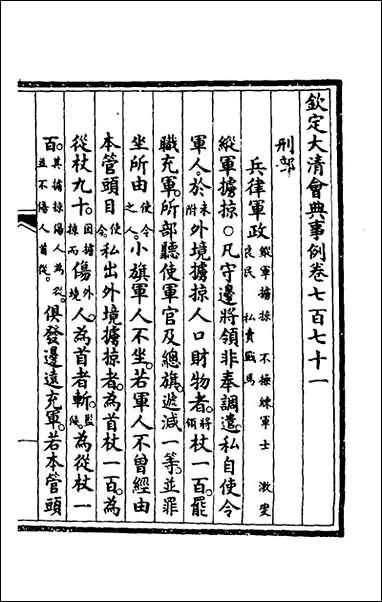 欽定大清會典事例卷七百七十一
刑部
兵律軍政 縱軍擄掠 不操練軍士 激變良民 私賣戰馬
縱軍擄掠○凡守邊將領非奉調遣。私自使令
軍人。於未附外境擄掠人口財物者。將領杖一百。罷
職充軍。所部聽使軍官及總旗。遞減一等。並罪
坐所由使令之人。小旗軍人不坐。若軍人不曾經由
本管頭目使令。私出外境擄掠者。為首杖一百。為
從杖九十。因擄掠而傷外境人。為首者斬。監候。為從杖一
百。其擄掠傷人為從。並不傷人首從。俱發邊遠充軍。若本管頭